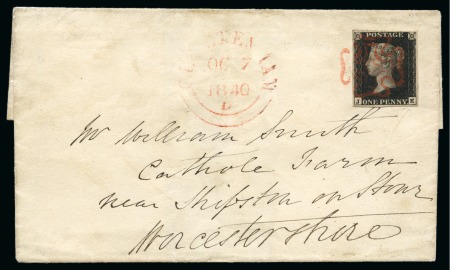 OC 7
1840
POSTAGE
J K
ONE PENNY
Mr William Smith
Cathole Farm
near Shipston on Stour
Worcestershire